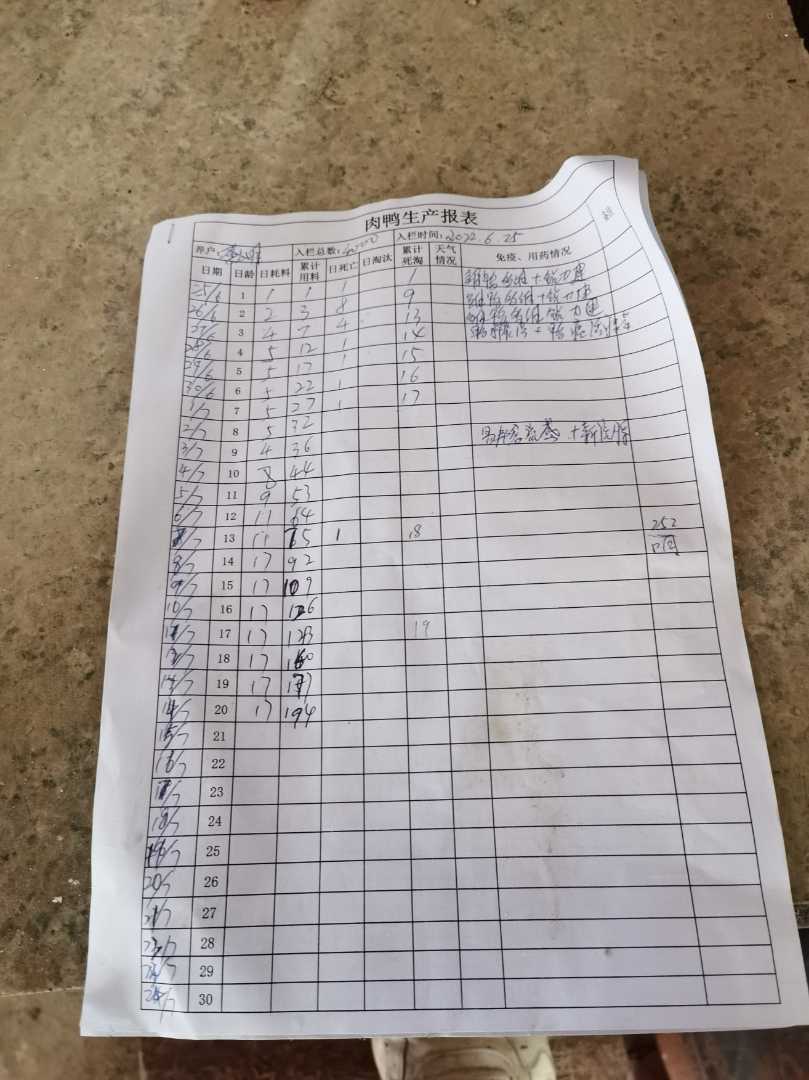 肉鸭生产报表
养户: 入栏总数: 入栏时间: 2022.6.25
日期 日龄 日耗料 累计用料 日死亡 日淘汰 累计死淘 天气情况 免疫、用药情况
25/6 1 1 1 1 1
26/6 2 2 3 8 9
27/6 3 4 7 4 13
28/6 4 5 12 1 14
29/6 5 5 17 1 15
30/6 6 5 22 1 16
1/7 7 5 27 1 17
2/7 8 5 32
3/7 9 4 36
4/7 10 8 44
5/7 11 9 53
6/7 12 11 64
7/7 13 11 75 1 18 252
8/7 14 17 92
9/7 15 17 109
10/7 16 17 126
17 17 19
18 17 160
19 17 177
14/7 20 17 194
15/7 21
16/7 22
17/7 23
18/7 24
19/7 25
20/7 26
21/7 27
28
29
30